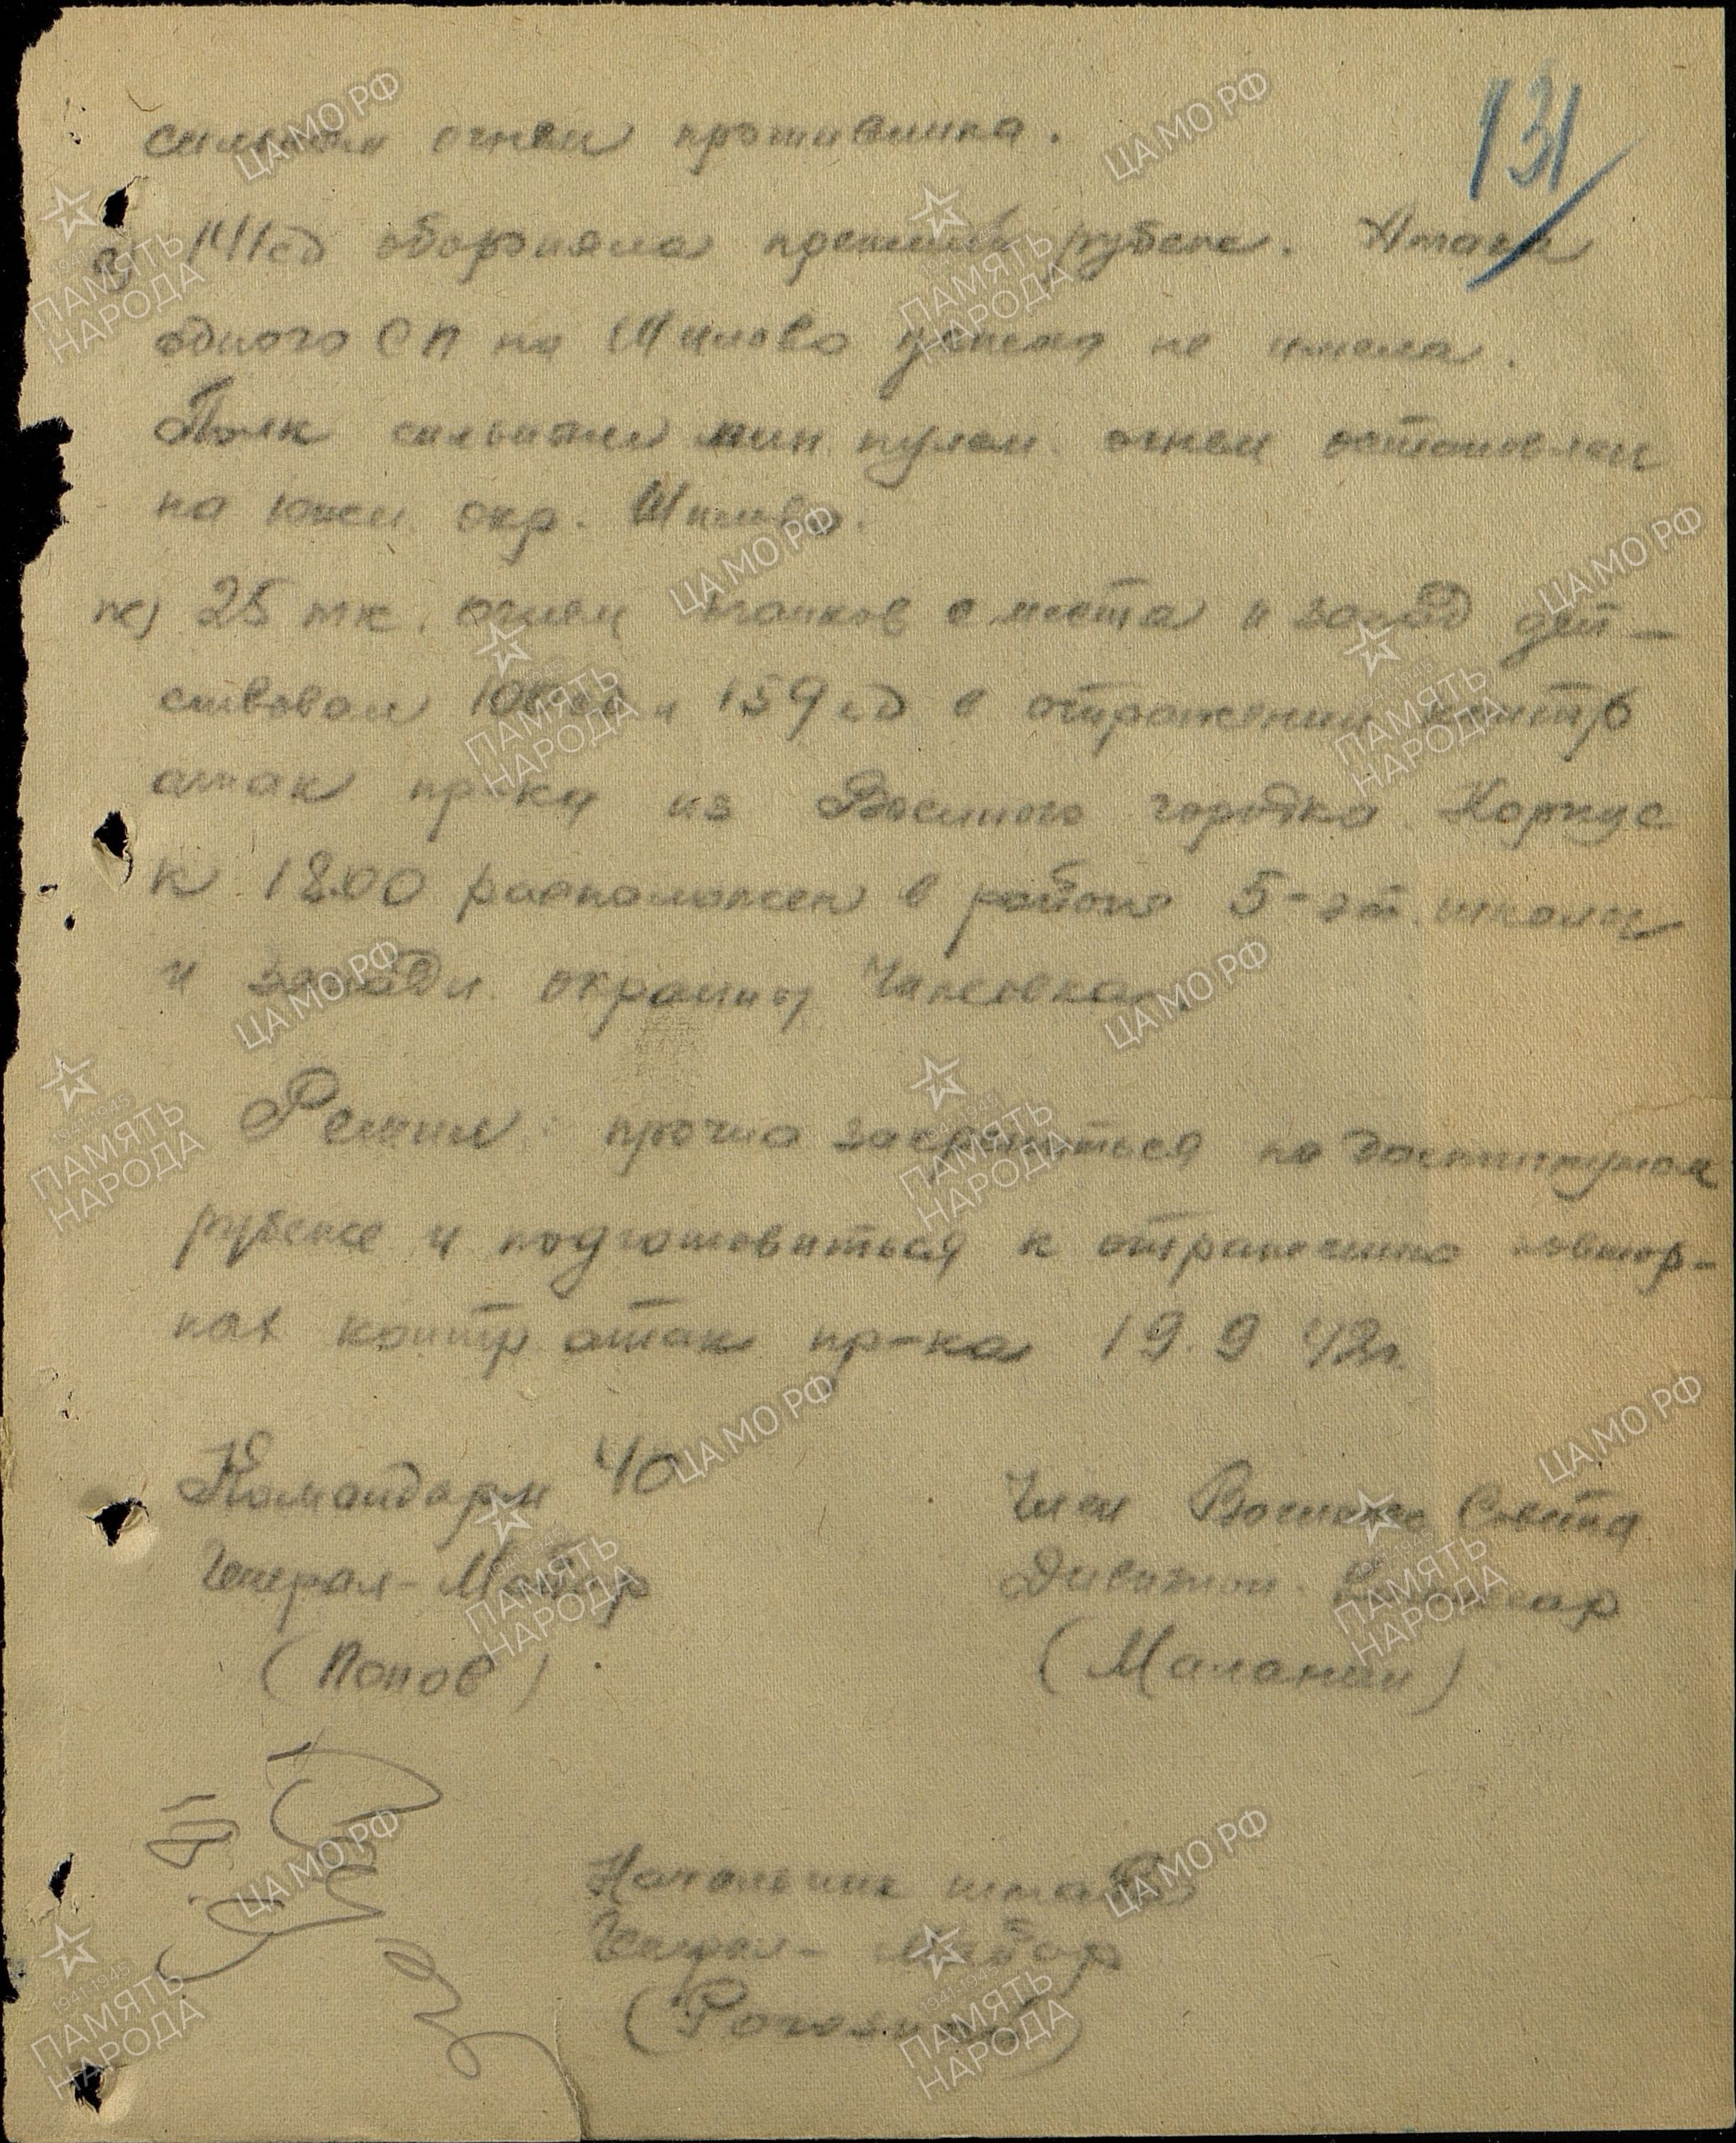 131
сильным огнем противника.
е) 141 сд обороняла прежний рубеж. Атака
одного СП на Шилово успеха не имела.
Полк сильным мин. пулем. огнем остановлен
на южн. окр. Шилово.
ж) 25 тк. огнем танков с места и засад дей-
ствовал и 159 сд в отражении контр
атак пр-ка из Военного городка. Корпус
к 18.00 расположен в районе 5-эт. школы
и западн. окраины Чижовка.
Решил: прочно закрепиться на достигнутом
рубеже и подготовиться к отражению повтор-
ных контр атак пр-ка 19.9 42г.
Командарм 40
Генерал-Майор
(Попов)
Член Военного Совета
Дивизион. Комиссар
(Маланин)
Начальник штаба
Генерал-Майор
(Рогозный)
ЦАМО РФ
1941-1945
ПАМЯТЬ
НАРОДА